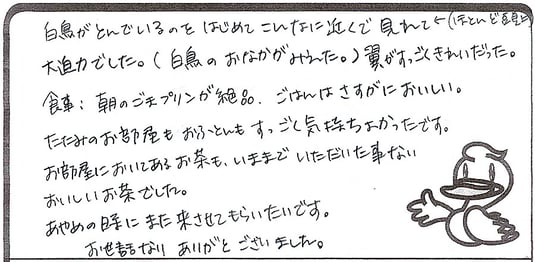 白鳥がとんでいるのをはじめてこんなに近くで見れて←(ほとんど真上)
大迫力でした。(白鳥のおなかがみえた。)翼がすっごくきれいだった。
食事:朝のごまプリンが絶品。ごはんはさすがにおいしい。
たたみのお部屋もおふとんもすっごく気持ちよかったです。
お部屋においてあるお茶も、いままでいただいた事ない
おいしいお茶でした。
あやめの時にまた来させてもらいたいです。
お世話なりありがとございました。